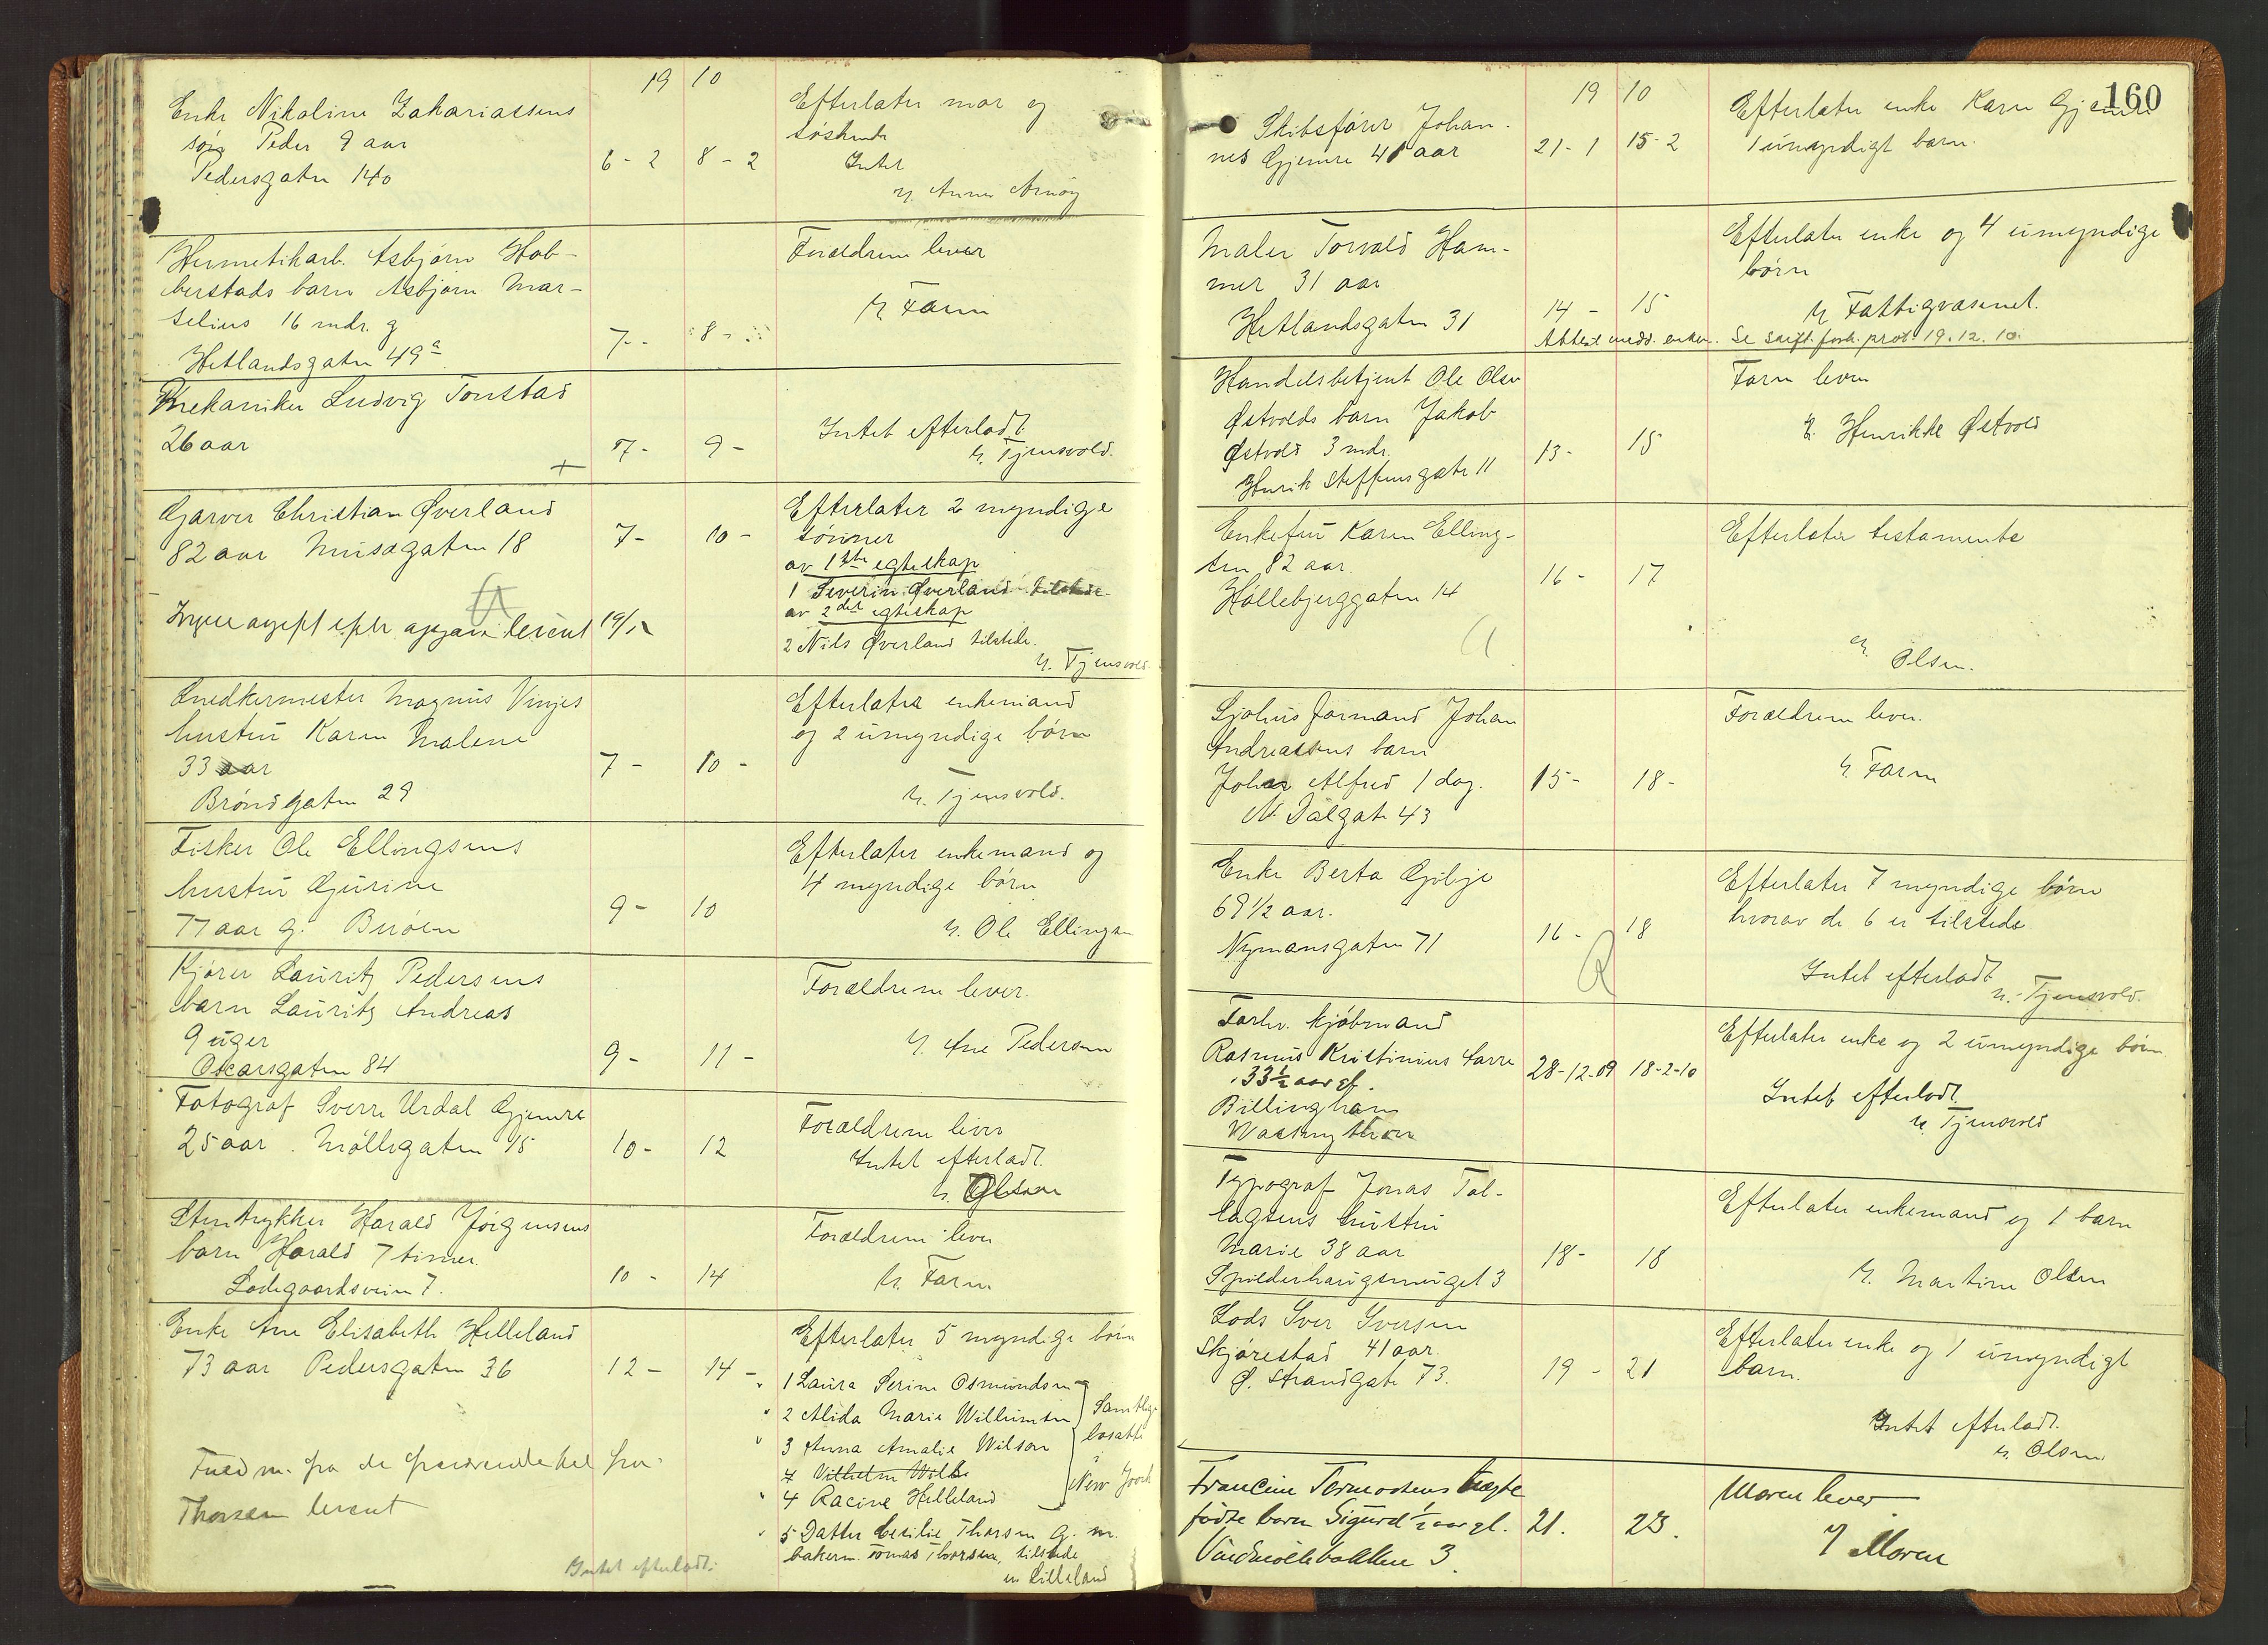 19 10
Enke Nikoline Zakariassens
søn Peder 9 aar
Pedersgaten 140
6 - 2 8 - 2
Efterlater mor og
søskende
Intet
Anna Arnøy
Hermetikarb. Asbjørn Hob-
berstads barn Asbjørn Mar-
selius 16 mdr. g
Hetlandsgaten 49a
7 - 8 -
Forældrene lever
Faren
Mekaniker Ludvig Tonstad
26 aar
7 - 9 -
Intet efterladt.
Tjensvold.
Garver Christian Øverland
82 aar Musegaten 18
7 - 10 -
19/12
Efterlater 2 myndige
sønner
av 1ste egteskap
1 Severin Øverland
av 2det egteskap
2 Nils Øverland tilstede.
Tjensvold
Snedkermester Magnus Vinjes
hustru Karen Malene
33 aar
Brøndgaten 29
7 - 10 -
Efterlater enkemand
og 2 umyndige børn
Tjensvold.
Fisker Ole Ellingsens
hustru Gurine
77 aar g. Buøen
9 - 10
Efterlater enkemand og
4 myndige børn
Ole Ellingsen
Kjører Lauritz Pedersens
barn Lauritz Andreas
9 uger
Oscarsgaten 84
9 - 11 -
Forældrene lever.
Ane Pedersen
Fotograf Sverre Urdal Gjemre
25 aar. Møllegaten 15
10 - 12
Forældrene lever
Intet efterladt.
Olsen
Stentrykker Harald Jørgensens
barn Harald 7 timer.
Ladegaardsveien 7.
10 - 14
Forældrene lever
Faren
Enke Ane Elisabeth Helleland
73 aar Pedersgaten 36
12 - 14 -
Efterlater 5 myndige børn
1 Laura Serine Osmundsen
2 Alida Marie Willumsen
3 Anna Amalie Wilson
4 Vilhelm
4 Racine Helleland
Samtlige
bosatte
New York
5 Datter Cecilie Thorsen g. m.
bakerm. Tomas Thorsen, tilstede
Lilleland
Thorsen
Intet efterladt.
160
19 10
Skibsfører Johan-
nes Gjemre 41 aar
21 - 1 15 - 2
Efterlater enke Karen Gjemre
1 umyndigt barn.
Maler Torvald Ham-
mer 31 aar
Hetlandsgaten 31
14 - 15
Efterlater enke og 4 umyndige
børn
Fattigvæsenet.
Attest medd. enken. Se skift. forh. prot. 19.12.10.
Handelsbetjent Ole Olsen
Østvolds barn Jakob
Østvold 3 mdr.
Henrik Steffensgate 11
13 - 15
Faren lever
Henrikke Østvold
Enkefru Karen Elling-
sen 82 aar.
Hollebjerggaten 14
16 - 17
Efterlater testamente
Olsen.
Sjøhusformand Johan
Andreassens barn
Johan Alfred 1 dag.
N. Dalgate 43
15 - 18 -
Forældrene lever.
Faren
Enke Berta Gilje
69 1/2 aar.
Nymansgaten 71
16 - 18
Efterlater 7 myndige børn
hvorav de 6 er tilstede
Intet efterladt
Tjensvold.
Forhv. kjøbmand
Rasmus Kristinius Sarre
33 1/2 aar gl.
Billingham
Washington
28-12-09 18-2-10
Efterlater enke og 2 umyndige børn
Intet efterladt.
Tjensvold
Typograf Jonas Tol-
lagsens hustru
Marie 38 aar
Spilderhaugsmuget 3
18 - 18
Efterlater enkemand og 1 barn
Martine Olsen
Lods Iver Iversen
Skjørestad 41 aar.
Ø. Strandgate 73.
19 - 21
Efterlater enke og 1 umyndigt
barn.
Intet efterladt.
Olsen
Francine Tormodsens uægte
fødte barn Sigurd 1/2 aar gl.
Vindmøllebakken 3.
21. 23.
Moren lever
Moren